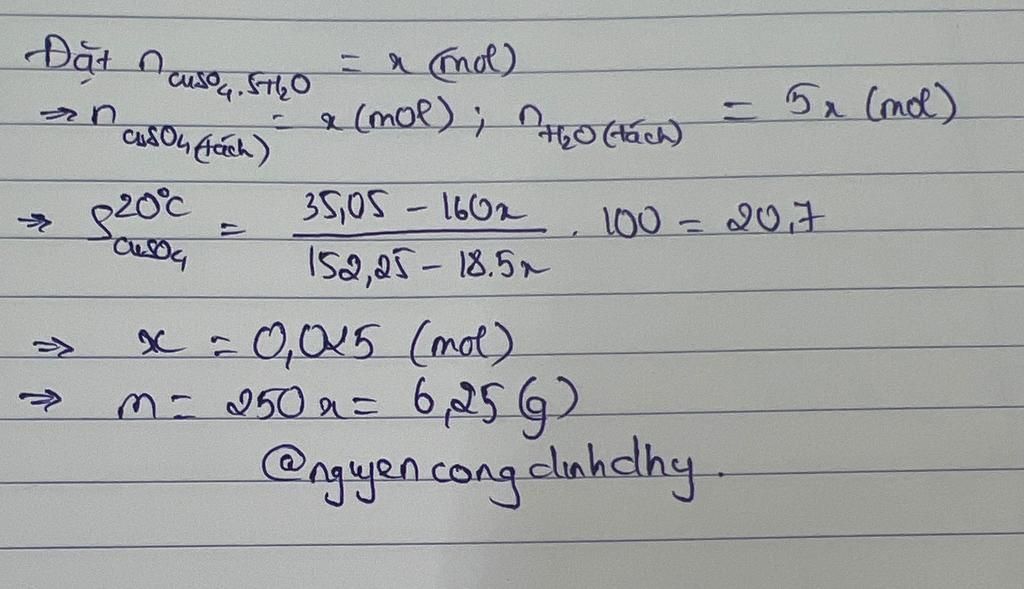 Đặt n CuSO₄.5H₂O = x (mol)
⇒ n CuSO₄ (tách) = x (mol) ; n H₂O (tách) = 5x (mol)
⇒ S 20°C CuSO₄ = (35,05 - 160x) / (152,25 - 18.5x) . 100 = 20,7
⇒ x = 0,025 (mol)
⇒ m = 250x = 6,25 (g)
@nguyencongdinhdhy.